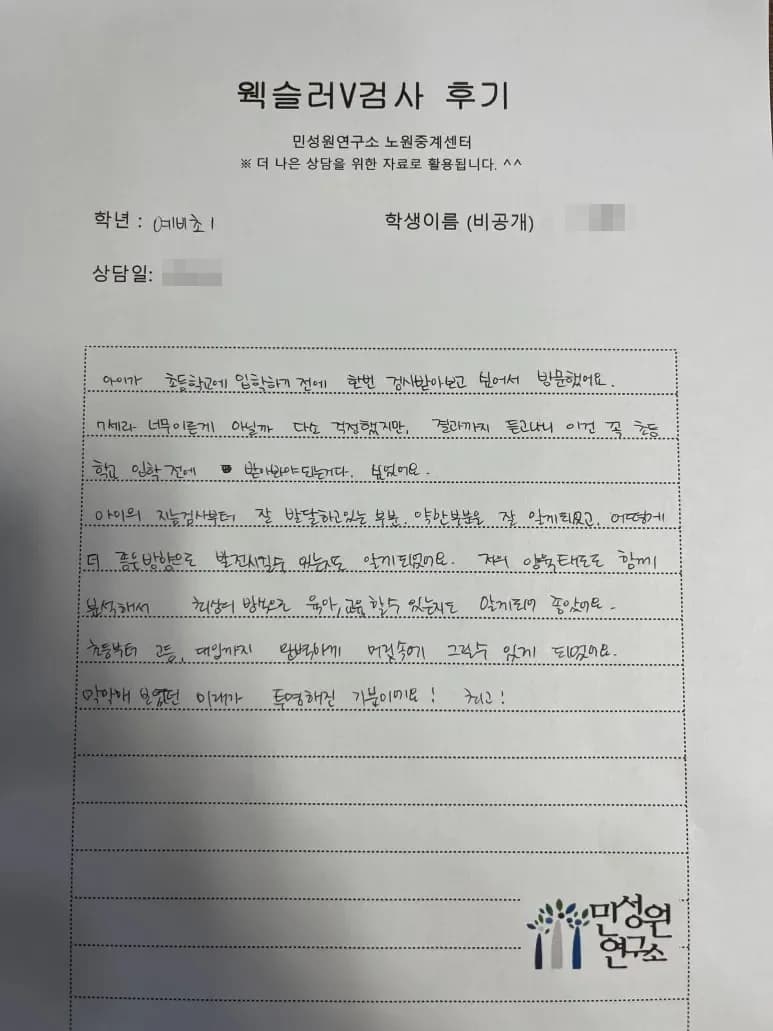 웩슬러V검사 후기
민성원연구소 노원중계센터
※ 더 나은 상담을 위한 자료로 활용됩니다. ^^
학년 : 예비초1 학생이름 (비공개)
상담일:
아이가 초등학교에 입학하기 전에 한번 검사받아보고 싶어서 방문했어요.
7세라 너무이른게 아닐까 다소 걱정했지만, 결과까지 듣고나니 이건 꼭 초등
학교 입학 전에 받아봐야되는거다. 싶었어요.
아이의 지능검사부터 잘 발달하고있는 부분. 약한부분을 잘 알게되었고, 어떻게
더 좋은방향으로 발전시킬수 있는지도 알게되었어요. 저의 양육태도도 함께
분석해서 최상의 방법으로 육아,교육할수 있는지도 알게되어 좋았어요.
초등부터 고등, 대입까지 완벽하게 머릿속에 그릴수 있게 되었어요.
막막해 보였던 미래가 투명해진 기분이에요! 최고!
민성원
연구소